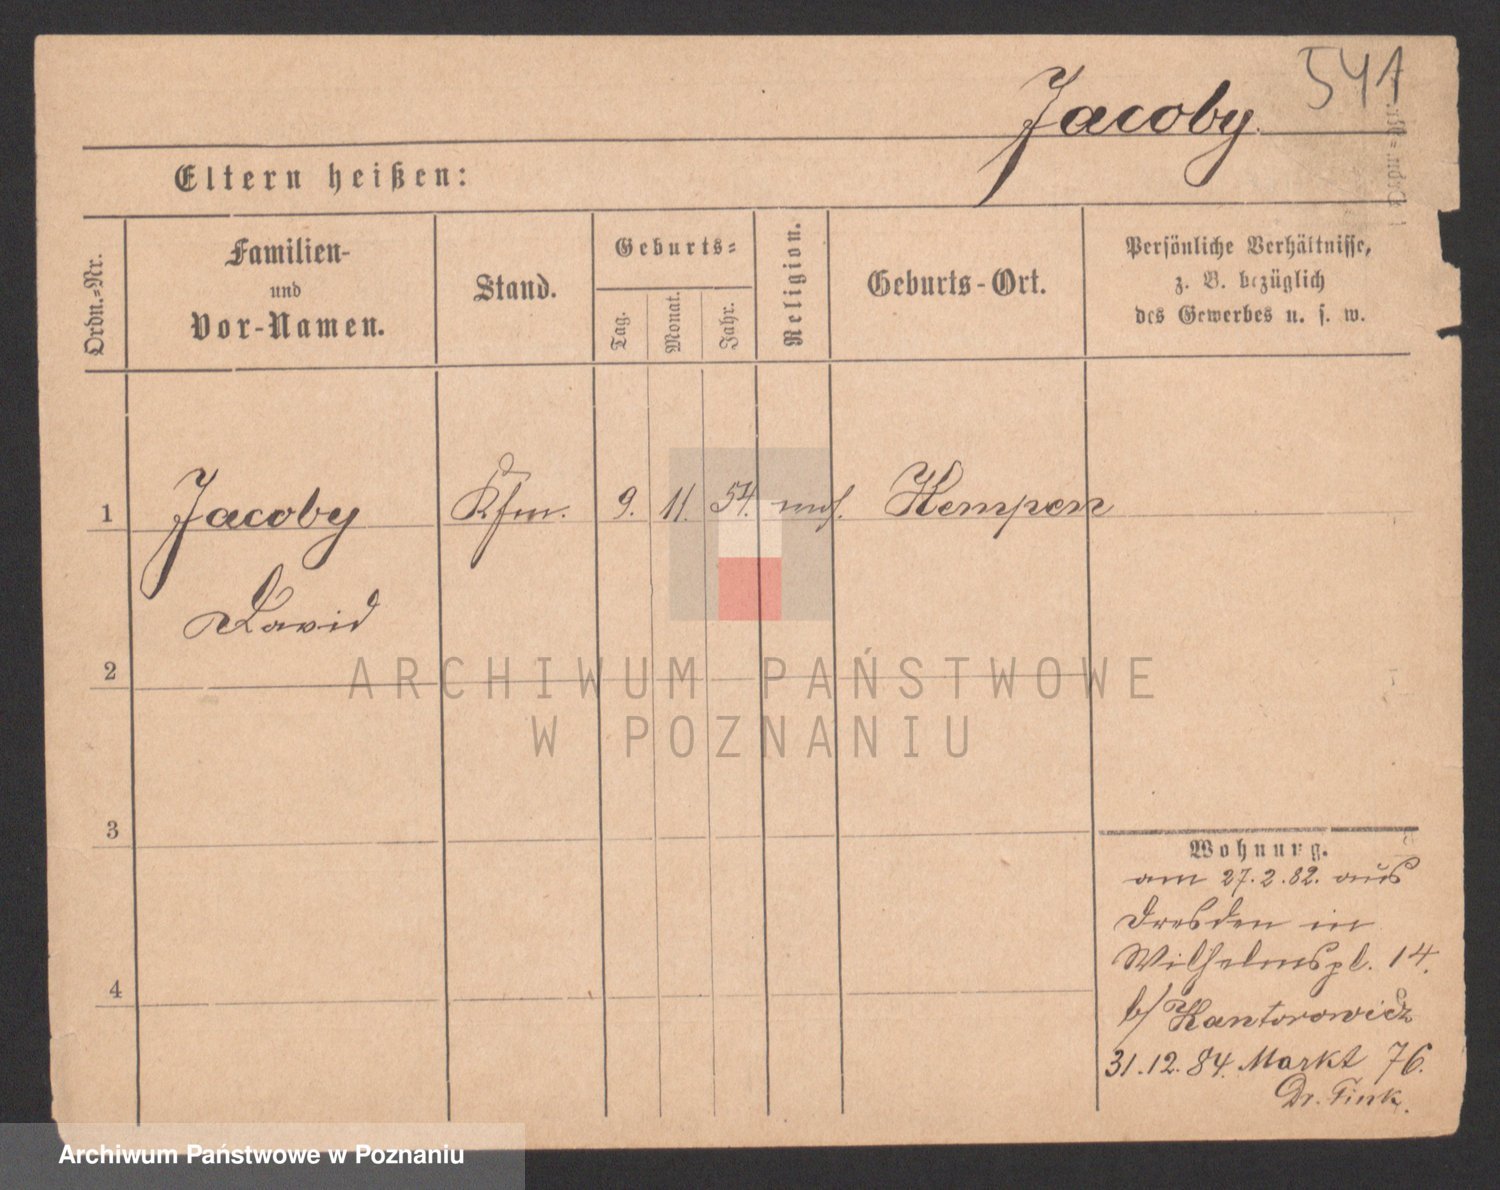 541
Jacoby.
Ordn.-Nr.
Eltern heißen:
Ordn.-Nr.
Familien-
und
Vor-Namen.
Stand.
Geburts-
Tag.
Monat.
Jahr.
Religion.
Geburts-Ort.
Persönliche Verhältnisse,
z. B. bezüglich
des Gewerbes u. s. w.
1 Jacoby Kfm. 9. 11. 54. mos. Kempen
David
2
ARCHIWUM PAŃSTWOWE
W POZNANIU
3
Wohnung.
am 27.2.82. aus
Dresden in
Wilhelmspl. 14.
b/ Kantorowicz
4
31.12.84. Markt 76.
Dr. Fink.
Archiwum Państwowe w Poznaniu